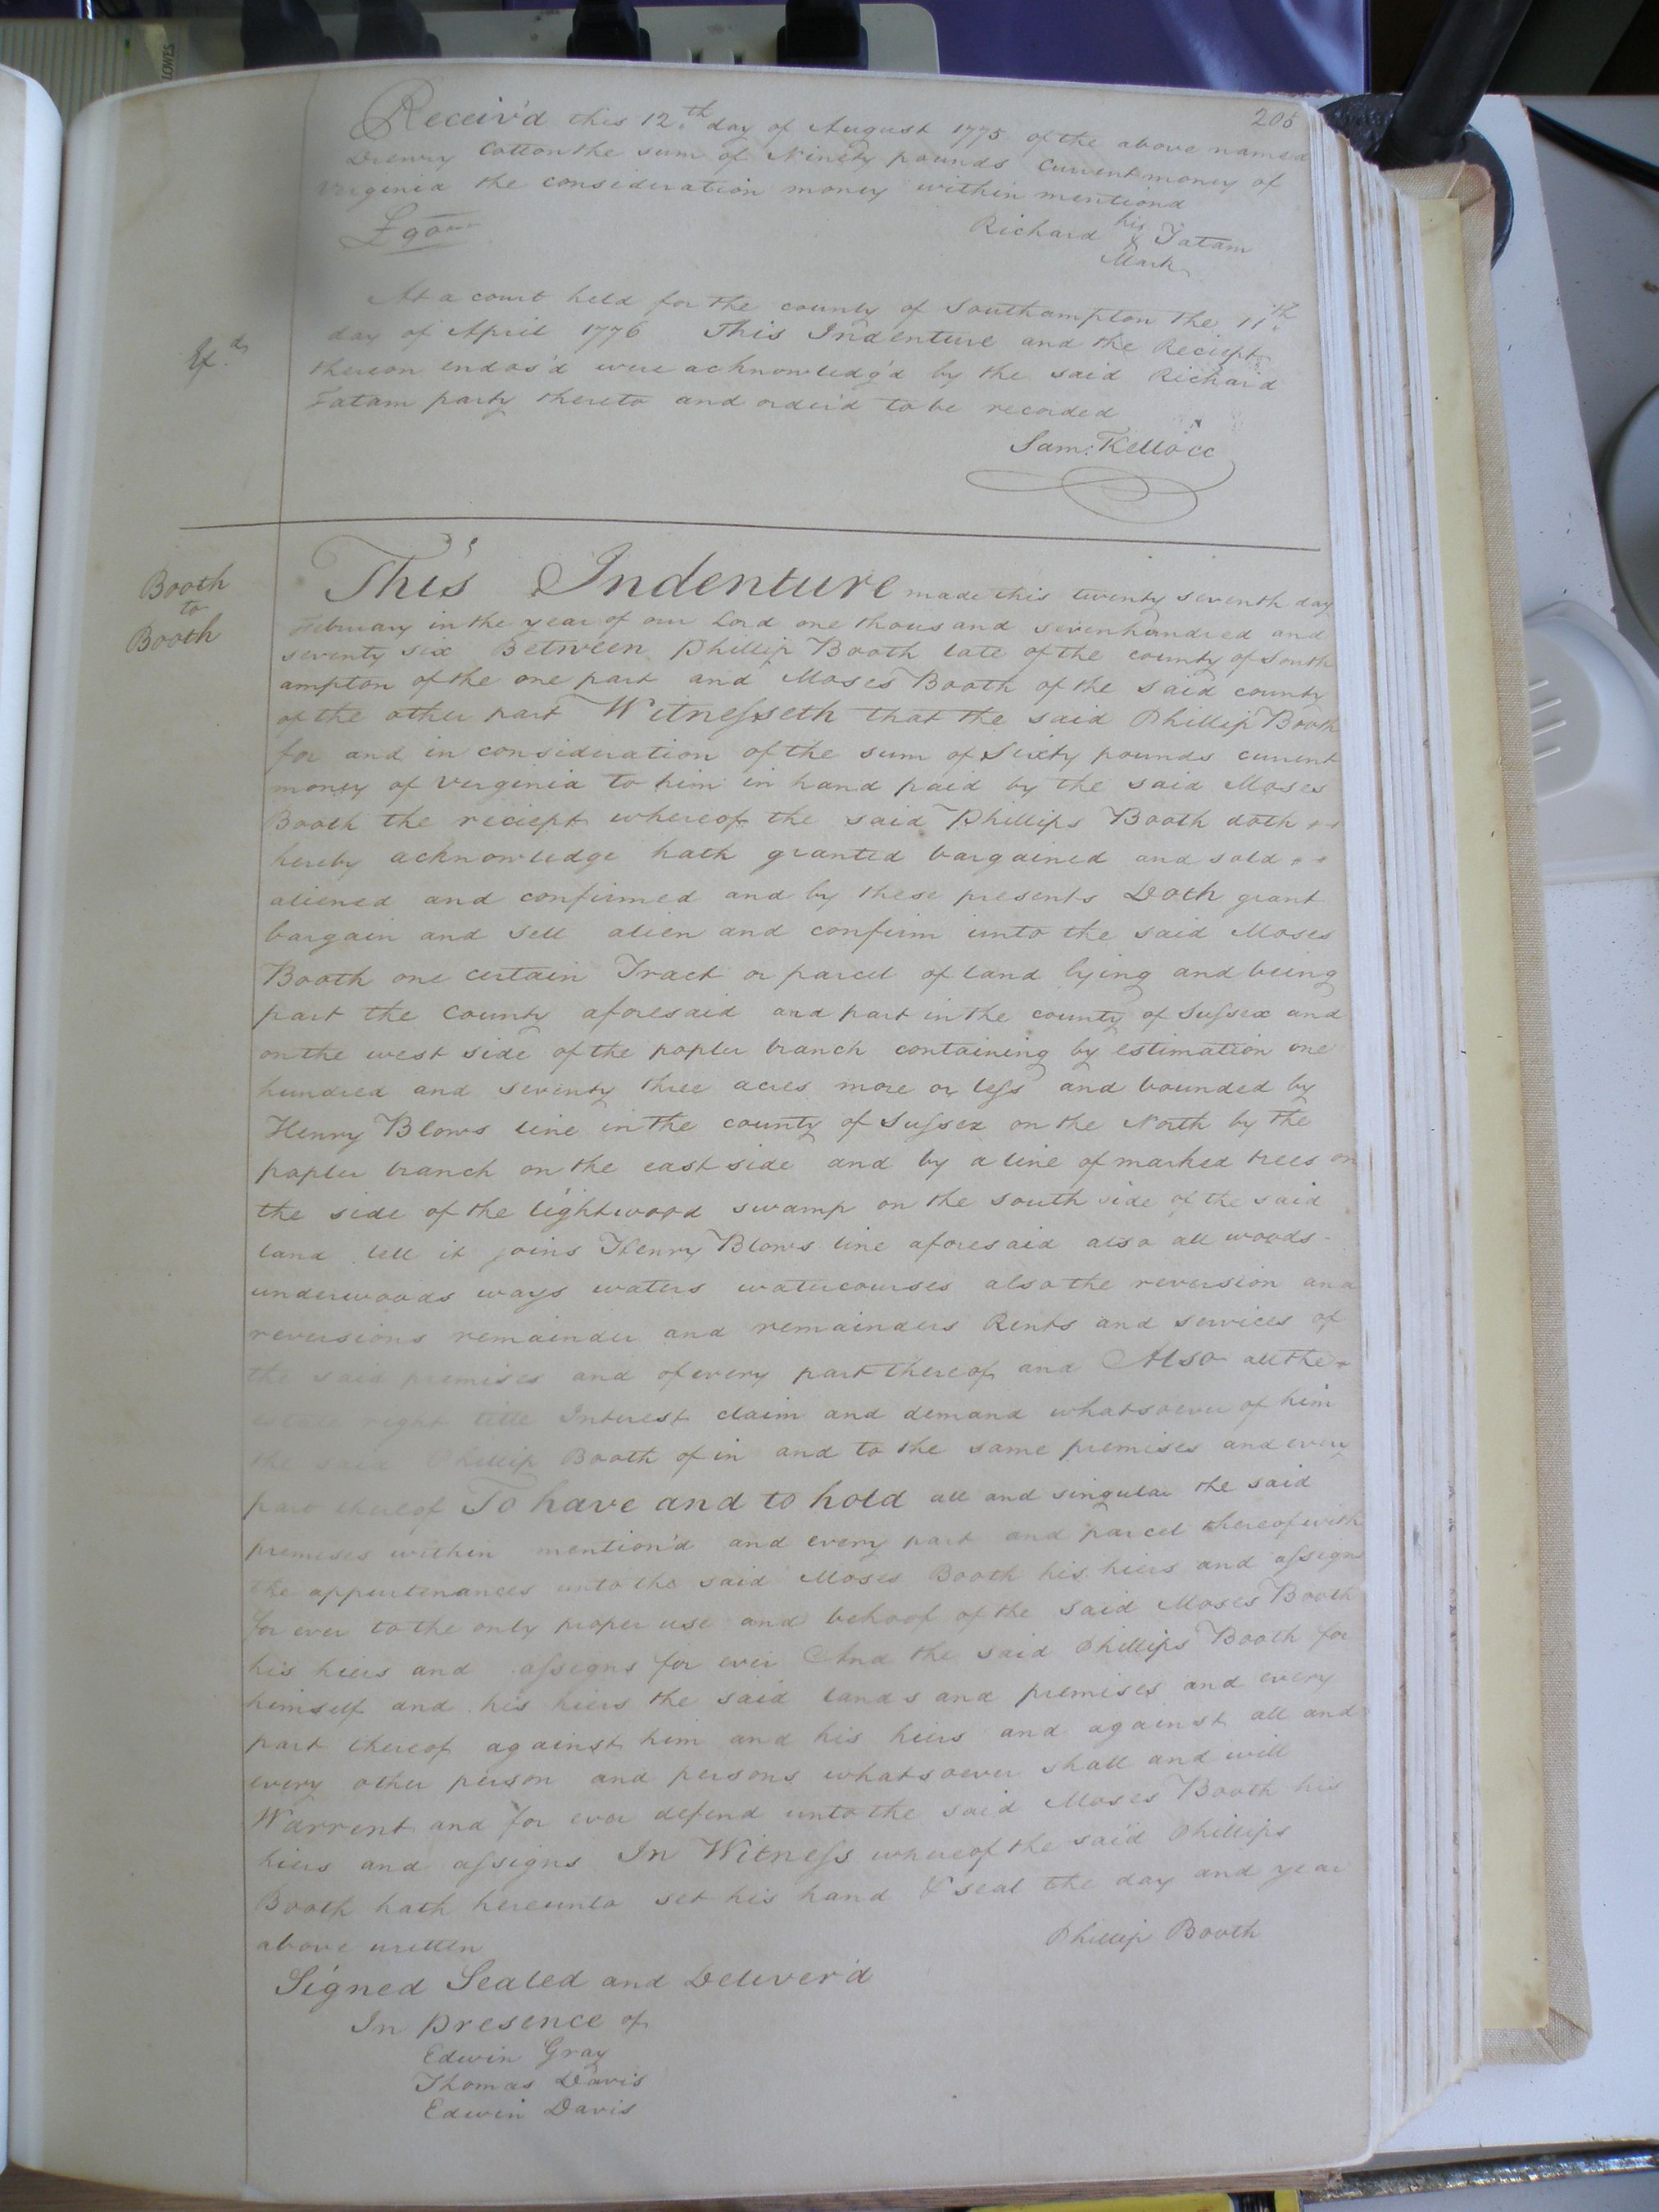 LOWES
205
Receiv'd this 12.th day of August 1775 of the above named
Drewry Cotton the sum of Ninety pounds Current money of
Virginia the consideration money within mentiond
£90
Richard his Tatam
Mark
At a court held for the county of Southampton the 11.th
day of April 1776 This Indenture and the Reciept
thereon endos'd were acknowledg'd by the said Richard
Tatam party thereto and order'd to be recorded
Sam: Kello CC
Booth
to
Booth
This Indenture made this twenty seventh day
February in the year of our Lord one thousand sevenhundred and
seventy six Between Phillip Booth late of the county of South
ampton of the one part and Moses Booth of the said county
of the other part Witnesseth that the said Phillip Booth
for and in consideration of the sum of Sixty pounds current
money of Virginia to him in hand paid by the said Moses
Booth the reciept whereof the said Phillips Booth doth
hereby acknowledge hath granted bargained and sold
aliened and confirmed and by these presents Doth grant
bargain and Sell alien and confirm unto the said Moses
Booth one certain Tract or parcel of land lying and being
part the County aforesaid and part in the county of Sussex and
on the west side of the popler branch containing by estimation one
hundred and seventy three acres more or less and bounded by
Henry Blows line in the county of Sussex on the North by the
popler branch on the east side and by a line of marked trees on
the side of the lightwood swamp on the south side of the said
land tell it joins Henry Blows line aforesaid also all woods
underwoods ways waters watercourses also the reversion and
reversions remainder and remainders Rents and services of
the said premises and of every part thereof and Also all the
estate right title Interest claim and demand whatsoever of him
the said Phillip Booth of in and to the same premises and every
part thereof To have and to hold all and singular the said
premises within mention'd and every part and parcel thereof with
the appurtenances unto the said Moses Booth his hiers and assigns
for ever to the only proper use and behoof of the said Moses Booth
his hiers and assigns for ever And the said Phillips Booth for
himself and his hiers the said lands and premises and every
part thereof against him and his hiers and against all and
every other person and persons whatsoever shall and will
Warrent and for ever defend unto the said Moses Booth his
hiers and assigns In Witness whereof the said Phillips
Booth hath hereunto set his hand & seal the day and year
above written
Phillip Booth
Signed Sealed and Deliver'd
In Presence of
Edwin Gray
Thomas Davis
Edwin Davis